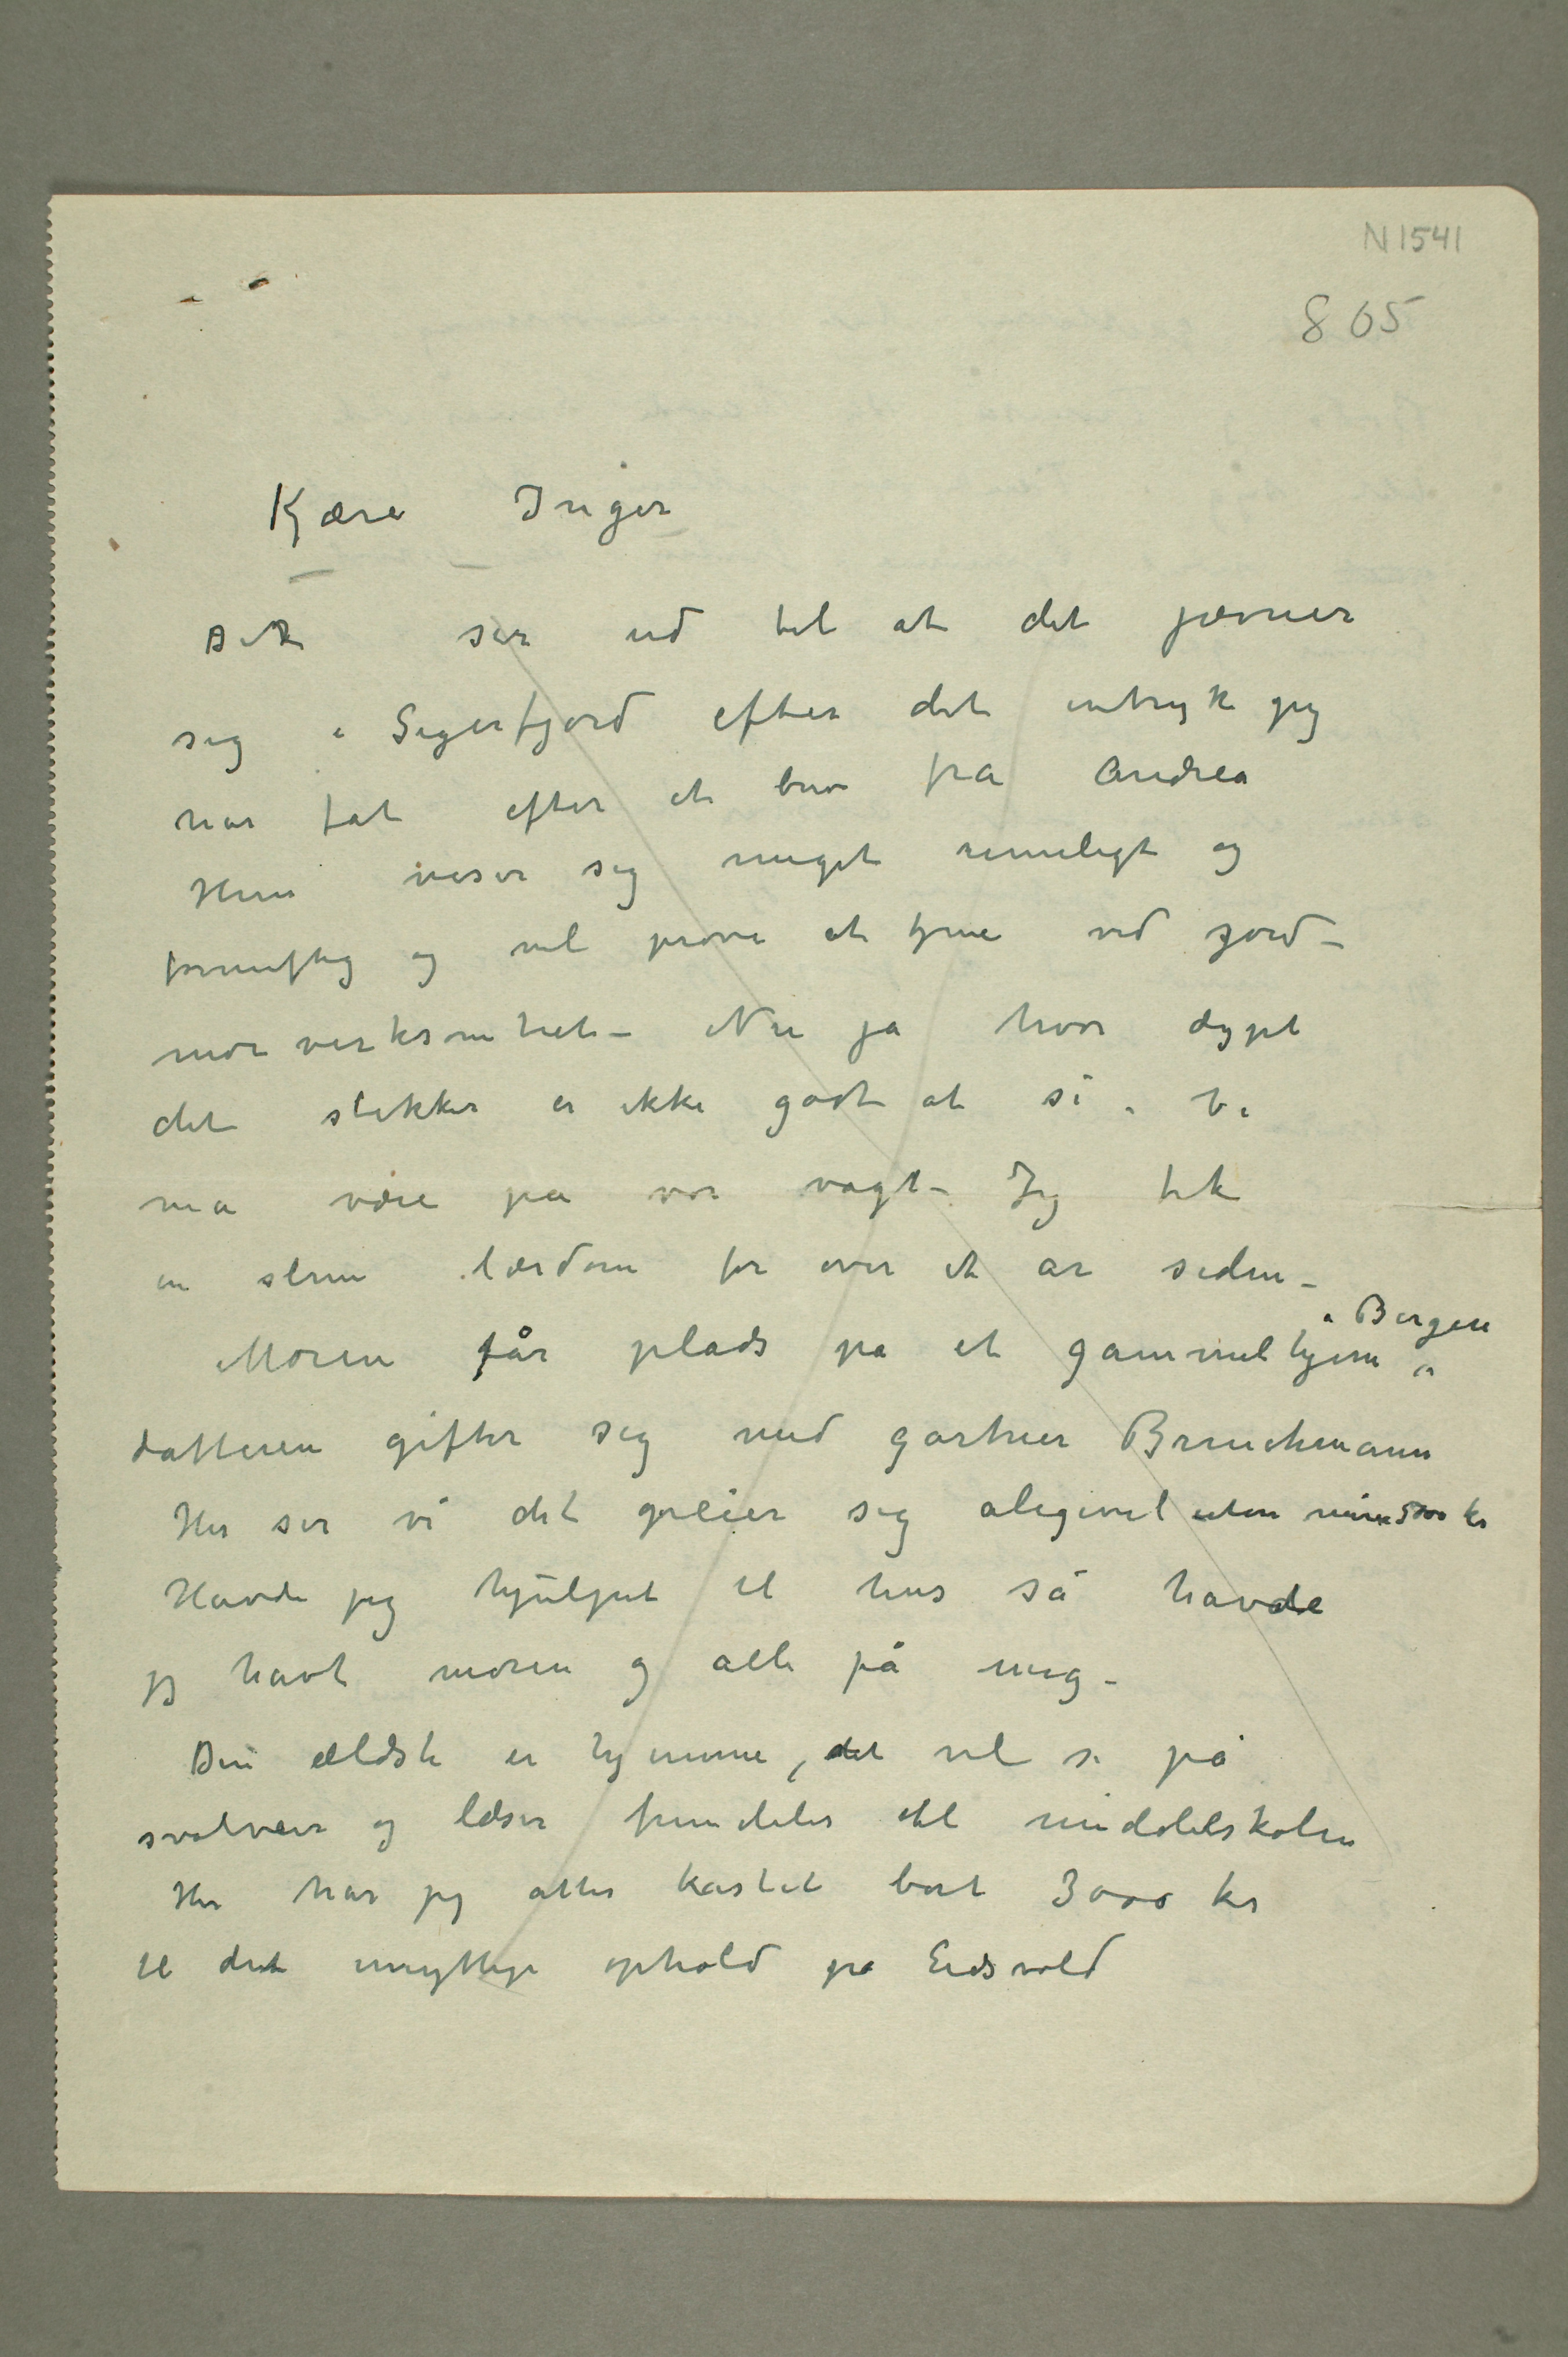 N 1541
865
Kjære Inger
Det ser ud til at det jævner
sig i Sigerfjord efter det intryk jeg
har fåt efter et brev fra Andrea
Hun viser sig meget rimeligt og
fornuftig og vil prøve at tjene ved jord-
mor virksomhet – Nu ja hvor dypt
det stikker er ikke godt at si. Vi
må være på vor vagt – Jeg fik
en slem lærdom for over et år siden –
i Bergen
Moren får plads på et gammelhjem
datteren gifter sig med gartner Bruchmann
Her ser vi det greier sig aligevel uten mine 5000 kr
Havde jeg hjulpet til hus så havde
jeg havt moren og alle på mig –
Den ældste er hjemme, det vil si på
svolvær og læser fremdeles til middelskolen
Her har jeg atter kastet bort 3000 kr
til det unyttige ophold på Eidsvold